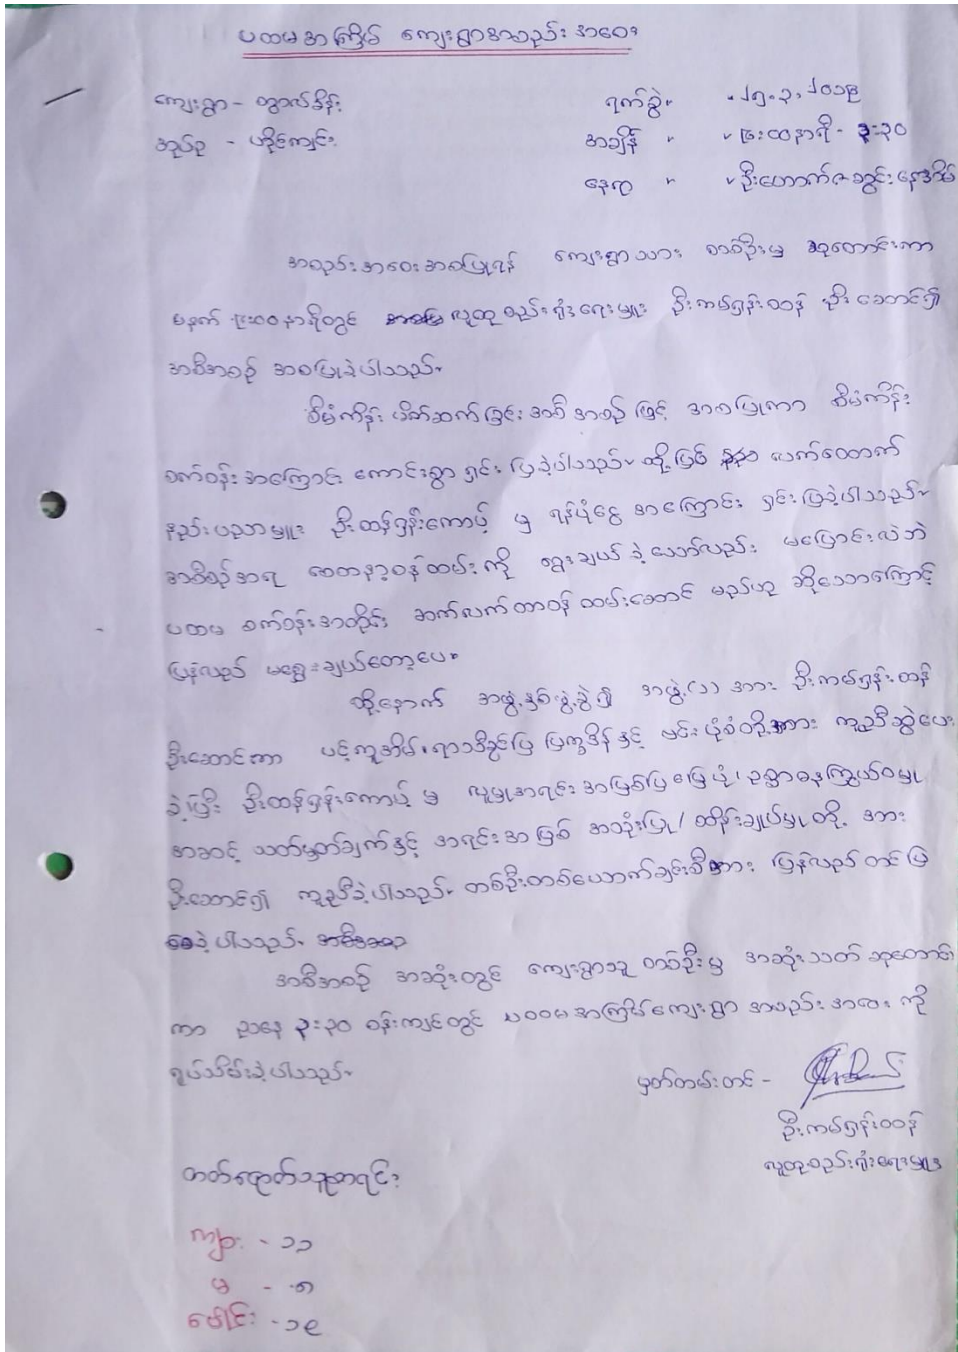 ပထမအကြိမ် ကျေးရွာအစည်းအဝေး
ကျေးရွာ - တွာလ်နိန်း
ရက်စွဲ။ ။ ၂၅.၃.၂၀၁၉
အုပ်စု - ဟိုင်ကျင်း
အချိန် ။ ။ ၉း၀၀နာရီ - ၃:၃၀
နေရာ ။ ။ ဦးဟောက်ဇခွင်းနေအိမ်
အစည်းအဝေးအစပြုရန် ကျေးရွာသား တစ်ဦးမှ ဆုတောင်းကာ
မနက် ၉း၀၀နာရီတွင် လူထုစည်းရုံးရေးမှူး ဦးကမ်ရှန်းထန် ဦးဆောင်၍
အစီအစဉ် အစပြုခဲ့ပါသည်။
စီမံကိန်း မိတ်ဆက်ခြင်း အစီအစဉ်ဖြင့် အစပြုကာ စီမံကိန်း
စက်ဝန်းအကြောင်း ကောင်းစွာ ရှင်းပြခဲ့ပါသည်။ ထို့ပြင် လက်ထောက်
နည်းပညာမှူး ဦးထန်ရှန်းကောပ့် မှ ရန်ပုံငွေ အကြောင်း ရှင်းပြခဲ့ပါသည်။
အစီစဉ်အရ စေတနာ့ဝန်ထမ်းကို ရွေးချယ်ခဲ့သော်လည်း မပြောင်းလဲဘဲ
ပထမ စက်ဝန်းအတိုင်း ဆက်လက်တာဝန် ထမ်းဆောင် မည်ဟု ဆိုသောကြောင့်
ပြန်လည် မရွေးချယ်တော့ပေ။
ထို့နောက် အဖွဲ့နှစ်ဖွဲ့ခွဲ၍ အဖွဲ့(၁) အား ဦးကမ်ရှန်းထန်
ဦးဆောင်ကာ ပင့်ကူအိမ်၊ ရာသီခွင်ပြ ပြက္ခဒိန်နှင့် မင်းပုံစံတို့အား ကူညီဆွဲပေး
ခဲ့ပြီး ဦးထန်ရှန်းကောပ့် မှ လူမှုအရင်းအမြစ်ပြမြေပုံ၊ ဥစ္စာဓနကြွယ်ဝမှု
အဆင့် သတ်မှတ်ချက်နှင့် အရင်းအမြစ် အသုံးပြု/ ထိန်းချုပ်မှုတို့ အား
ဦးဆောင်၍ ကူညီခဲ့ပါသည်။ တစ်ဦးတစ်ယောက်ချင်းစီအား ပြန်လည် တင်ပြ
စေခဲ့ပါသည်။
အစီအစဉ် အဆုံးတွင် ကျေးရွာသူ တစ်ဦးမှ အဆုံးသတ် ဆုတောင်း
ကာ ညနေ ၃း၃၀ ဝန်းကျင်တွင် ပထမအကြိမ်ကျေးရွာ အစည်းအဝေးကို
ရုပ်သိမ်းခဲ့ပါသည်။
မှတ်တမ်းတင် -
ဦးကမ်ရှန်းထန်
လူထုစည်းရုံးရေးမှူး
တတ်ရောက်သူစာရင်း
ကျား - ၁၁
မ - ၈
ပေါင်း - ၁၉